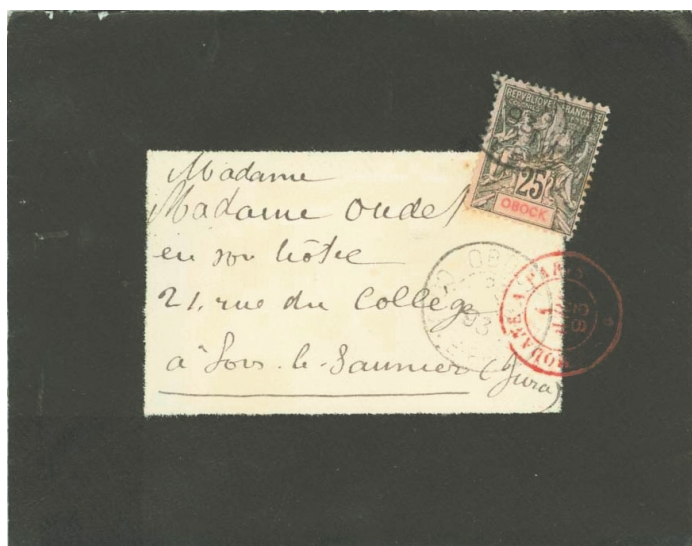 REPVBLIQVE FRANCAISE
25
OBOCK
Madame
Madame Oudet
en son hôtel
21, rue du Collège
à Lons-le-Saunier (Jura)
OBO
93
A PARIS
93